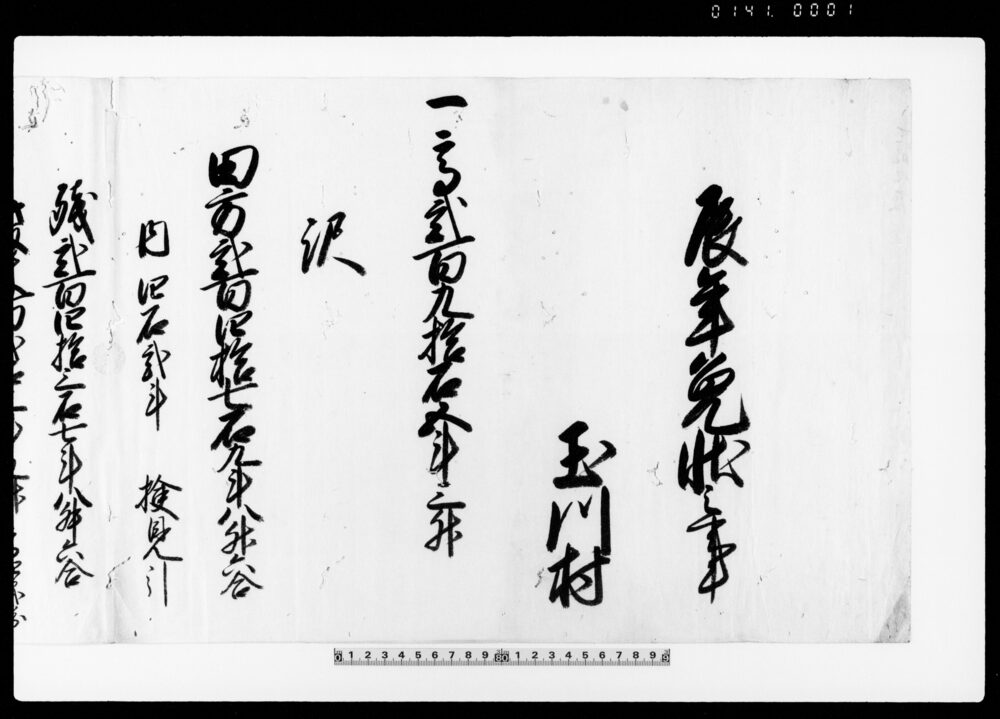 0141. 0001
辰年免状之事
玉川村
一高弐百九拾石五斗三升
訳
田方弐百四拾七石九斗八升六合
内四石弐斗 検見引
残弐百四拾三石七斗八升六合
0 1 2 3 4 5 6 7 8 9 1 2 3 4 5 6 7 8 9